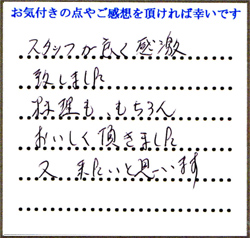 お気付きの点やご感想を頂ければ幸いです
スタッフが良く感激
致しました
料理も、もちろん
おいしく頂きました
又 来たいと思います